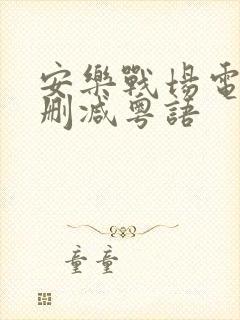 安樂戰場電
刪減粵語
童童